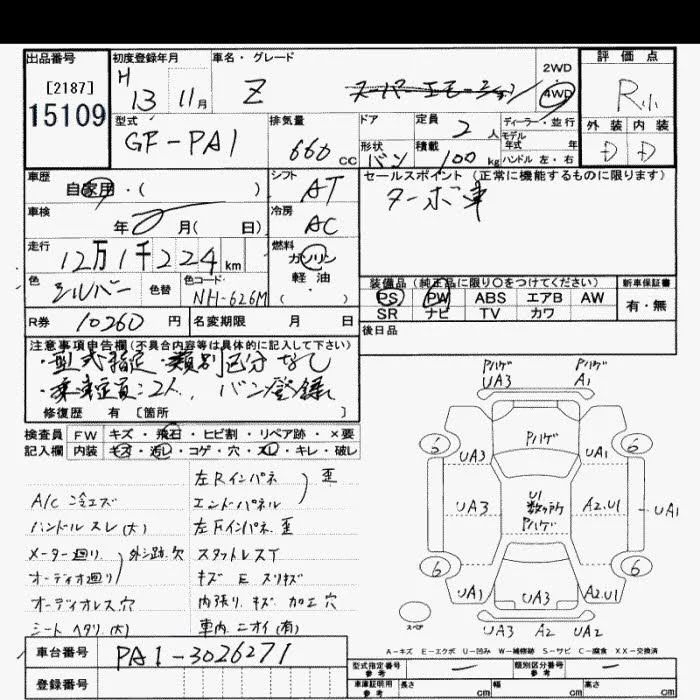 出品番号
[2187]
15109
初度登録年月
H 13年 11月
車名・グレード
Z
2WD
4WD
評価点
R小
外装 内装
D D
型式
GF-PA1
排気量
660 cc
ドア
形状
バン
定員
2 人
積載
100 kg
ディーラー・並行
モデル
年式 年
ハンドル 左・右
車歴
自家用・( )
シフト
AT
セールスポイント(正常に機能するものに限ります)
ターボ車
車検
年 月( 日)
冷房
AC
走行
12万1千224 km
燃料
ガソリン
軽油
( )
色
シルバー
色替
色コード
NH-626M
装備品(純正品に限り○をつけてください)
PS PW ABS エアB AW
SR ナビ TV カワ
新車保証書
有・無
R券
10260 円
名変期限 月 日
後日品
注意事項申告欄(不具合内容等は具体的に記入して下さい)
・型式指定・類別区分なし
・乗車定員:2人、バン登録
修復歴 有 [箇所 ]
検査員 FW キズ・飛石・ヒビ割・リペア跡・×要
記入欄 内装 キズ・汚レ・コゲ・穴・スレ・キレ・破レ
A/C 冷エズ
ハンドル スレ(大)
メーター廻リ 外シ跡 穴
オーディオ廻リ
オーディオレス 穴
シート ヘタリ(大)
左Rインパネ 歪
エンドパネル
左Fインパネ 歪
スタットレスT
キズ E スリキズ
内張リ キズ 加工穴
車内 ニオイ(有)
Pハゲ
UA3
Pハゲ
A1
6
6
Pハゲ
UA3
UA1
UA3
U1
数ヶ所
Pハゲ
A2.U1
UA1
6
6
UA1
UA3
A2.U1
スペア
UA3 A2 UA2
A-キズ E-エクボ U-凹み W-補修跡 S-サビ C-腐食 XX-交換済
車台番号
PA1-3026271
登録番号
型式指定番号
参考
ー
類別区分番号
参考
ー
車庫証明用
参考
長さ cm
幅 cm
高さ cm